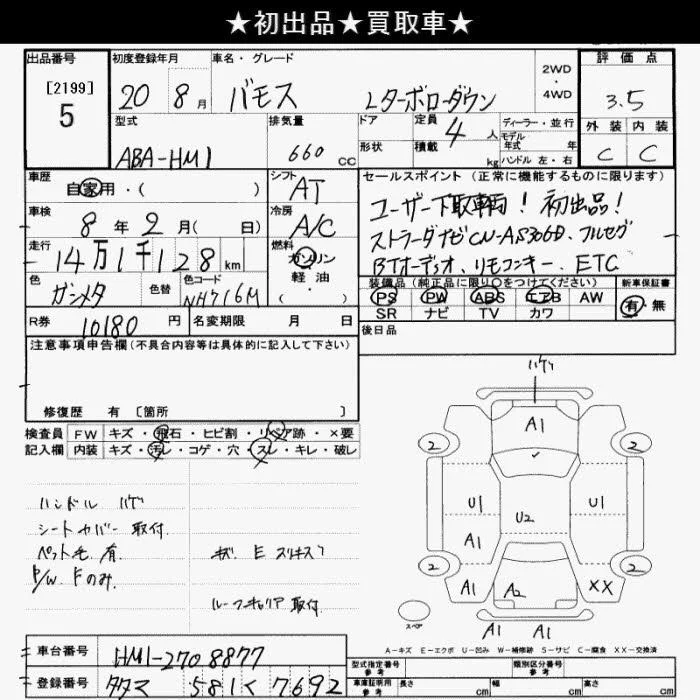 ★初出品★買取車★
出品番号 初度登録年月 車名・グレード 2WD・4WD 評価点
[2199]
5
20 8月 バモス Lターボローダウン 3.5
型式 排気量 ドア 定員 ディーラー・並行
ABA-HM1 660CC 4人 モデル年式 年
形状 積載 kg ハンドル 左・右
外装 内装
C C
車歴 自家用・( )
シフト AT
車検 8年2月( 日)
冷房 A/C
走行 14万1千128km
燃料 ガソリン・軽油 ( ・ )
色 ガンメタ 色替 色コード NH716M
R券 10180円 名変期限 月 日
セールスポイント(正常に機能するものに限ります)
ユーザー下取車輌!初出品!
ストラーダナビCN-AS300D、フルセグ
BTオーディオ、リモコンキー、ETC
装備品(純正品に限り○をつけてください) 新車保証書
PS PW ABS エアB AW 有・無
SR ナビ TV カワ
後日品
注意事項申告欄(不具合内容等は具体的に記入して下さい)
修復歴 有 〔箇所 〕
検査員記入欄
FW キズ・飛石・ヒビ割・リペア跡・×要
内装 キズ・汚レ・コゲ・穴・スレ・キレ・破レ
ハンドル ハゲ
シートカバー 取付
ペット毛 有
P/W Fのみ
ルーフキャリア 取付
ハゲ
A1
2 2
U1 U2 U1
A1
2 2
A1 A2 XX
スペア A1 A1
A-キズ E-エクボ U-凹み W-補修跡 S-サビ C-腐食 XX-交換済
車台番号 HM1-2708877
登録番号 タタマ 581く7692
型式指定番号 参考 類別区分番号 参考
車庫証明用 参考 長さ cm 幅 cm 高さ cm